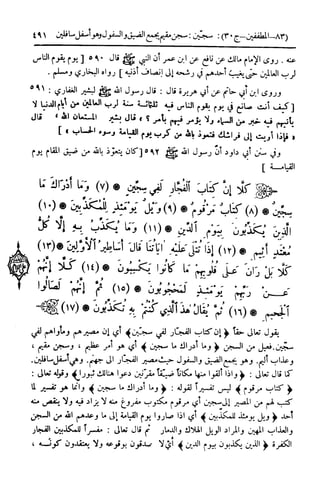 (٨٣- المطففين - ج٣٠) : سجّين : سجن مقيم يجمع الضيق والسفول وهو أسفل سافلين ٤٩١
عنه . روى الإمام مالك عن نافع عن ابن عمر أن النبي ﷺ قال ٥٩٠ [ يوم يقوم الناس
لرب العالمين حتى يغيب أحدهم في رشحه إلى إنصاف أذنيه ] رواه البخاري ومسلم .
وروى ابن أبي حاتم عن أبي هريرة قال : قال رسول الله ﷺ لبشير الغفاري : ٥٩١
[ كيف أنت صانع في يوم يقوم الناس فيه ثلثمائة سنة لرب العالمين من أيام الدنيا لا
يأتيهم فيه خبر من السماء ولا يؤمر فيهم بأمر ؟ » قال بشير المستعان الله » قال
« فإذا أويت إلى فراشك فتعوذ بالله من كرب يوم القيامة وسوء الحساب » ]
وفي سنن أبي داود أن رسول الله ﷺ ٥٩٢ [ كان يتعوذ بالله من ضيق المقام يوم
القيامة ]
كَلَّا إِنَّ كِتَابَ الْفُجَّارِ لَفِي سِجِّينٍ * (٧) وَمَا أَدْرَاكَ مَا
سِجِّينٌ * (٨) كِتَابٌ مَرْقُومٌ * (٩) وَيْلٌ يَوْمَئِذٍ لِلْمُكَذِّبِينَ * (١٠)
الَّذِينَ يُكَذِّبُونَ بِيَوْمِ الدِّينِ * (١١) وَمَا يُكَذِّبُ بِهِ إِلَّا كُلُّ
مُعْتَدٍ أَثِيمٍ * (١٢) إِذَا تُتْلَى عَلَيْهِ آيَاتُنَا قَالَ أَسَاطِيرُ الْأَوَّلِينَ * (١٣)
كَلَّا بَلْ رَانَ عَلَى قُلُوبِهِمْ مَا كَانُوا يَكْسِبُونَ * (١٤) كَلَّا إِنَّهُمْ
عَنْ رَبِّهِمْ يَوْمَئِذٍ لَمَحْجُوبُونَ * (١٥) ثُمَّ إِنَّهُمْ لَصَالُوا
الْجَحِيمِ * (١٦) ثُمَّ يُقَالُ هَذَا الَّذِي كُنْتُمْ بِهِ تُكَذِّبُونَ * (١٧)
يقول تعالى حقاً ﴿ إن كتاب الفجار لفي سجين ﴾ أي إن مصيرهم ومأواهم لفي
سجين. فعيل من السجن ﴿ وما أدراك ما سجين ﴾ أي هو أمر عظيم ، وسجن مقيم ،
وعذاب أليم. وهو يجمع الضيق والسفول حيث مصير الفجار الى جهنم. وهي أسفل سافلين.
كما قال تعالى : ﴿ وإذا ألقوا منها مكاناً ضيقاً مقرنين دعوا هنالك ثبورا ﴾ وقوله تعالى :
﴿ كتاب مرقوم ﴾ ليس تفسيراً لقوله : ﴿ وما أدراك ما سجين ﴾ وانما هو تفسير لما
كتب لهم من المصير إلى سجين أي مرقوم مكتوب مفروغ منه لا يزاد فيه ولا ينقص منه
أحد ﴿ ويل يومئذ للمكذبين ﴾ أي اذا صاروا يوم القيامة إلى ما وعدهم الله من السجن
والعذاب المهين والمراد الويل الهلاك والدمار ثم قال تعالى : مفسراً للمكذبين الفجار
الكفرة ﴿ الذين يكذبون بيوم الدين ﴾ أي لا صدقون بوقوعه ولا يعتقدون كونه ،